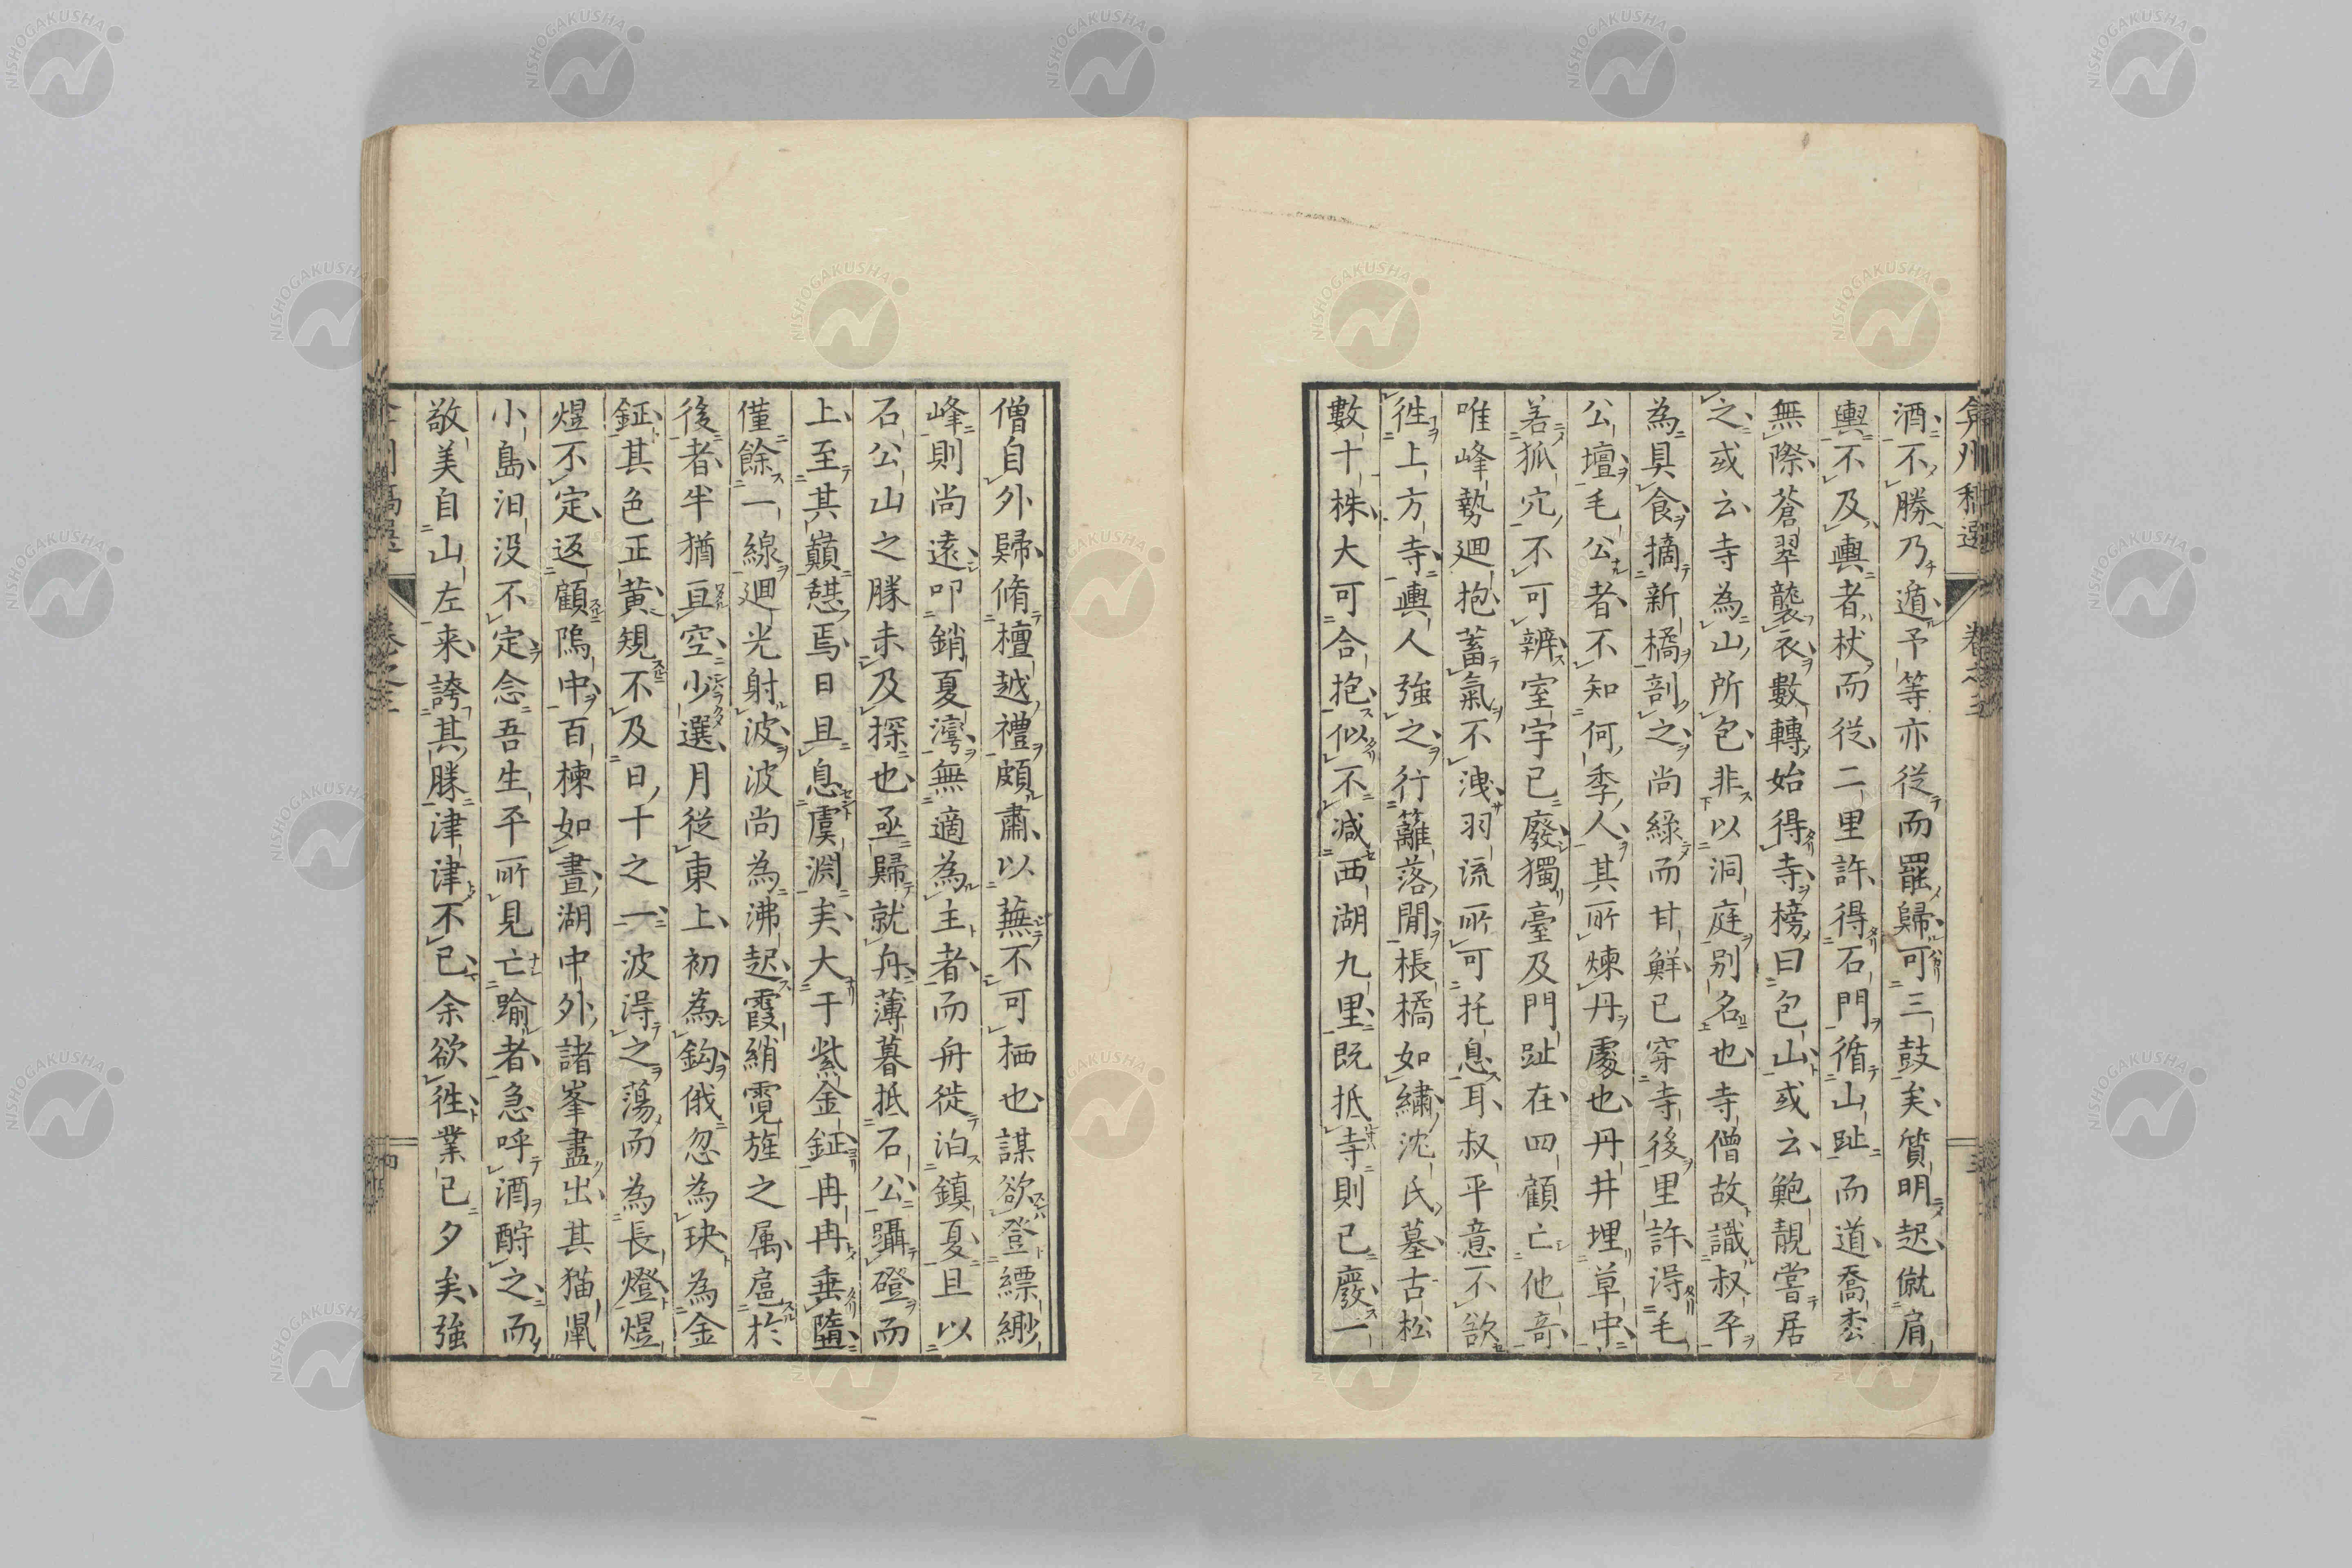 酒不勝乃遁予等亦従而罷歸可三鼓矣質明起僦肩
輿不及輿者杖而従二里許得石門循山趾而道喬柰
無際蒼翠襲衣數轉始得寺榜曰包山或云鮑靚嘗居
之或云寺為山所包非以洞庭别名也寺僧故識叔平
為具食摘新橘剖之尚綠而甘鮮已穿寺後里許得毛
公壇毛公者不知何季人其所煉丹處也丹井埋草中
若狐穴不可辨室宇已廢獨臺及門趾在四顧亡他奇
唯峰勢廻抱蓄氣不洩羽流所可托息耳叔平意不欲
徃上方寺輿人強之行籬落間棖橘如繡沈氏墓古松
數十株大可合抱似不減西湖九里既抵寺則已廢一
僧自外歸脩檀越禮頗肅以蕪不可栖也謀欲登縹緲
峰則尚遠叩銷夏灣無適為主者而舟徙泊鎮夏且以
石公山之勝未及探也亟歸就舟薄暮抵石公躡磴而
上至其巔憇焉日且息虞淵矣大于紫金鉦冉冉垂墮
僅餘一線廻光射波波尚為沸起霞綃霓旌之属扈於
後者半猶亘空少選月従東上初為鈎俄忽為玦為金
鉦其色正黄規不及日十之一波得之蕩而為長燈煜
煜不定返顧隝中百楝如晝湖中外諸峯盡出其猫鼠
小島汨没不定念吾生平所見亡踰者急呼酒酹之而
敬美自山左来誇其勝津津不已余欲徃業已夕矣強